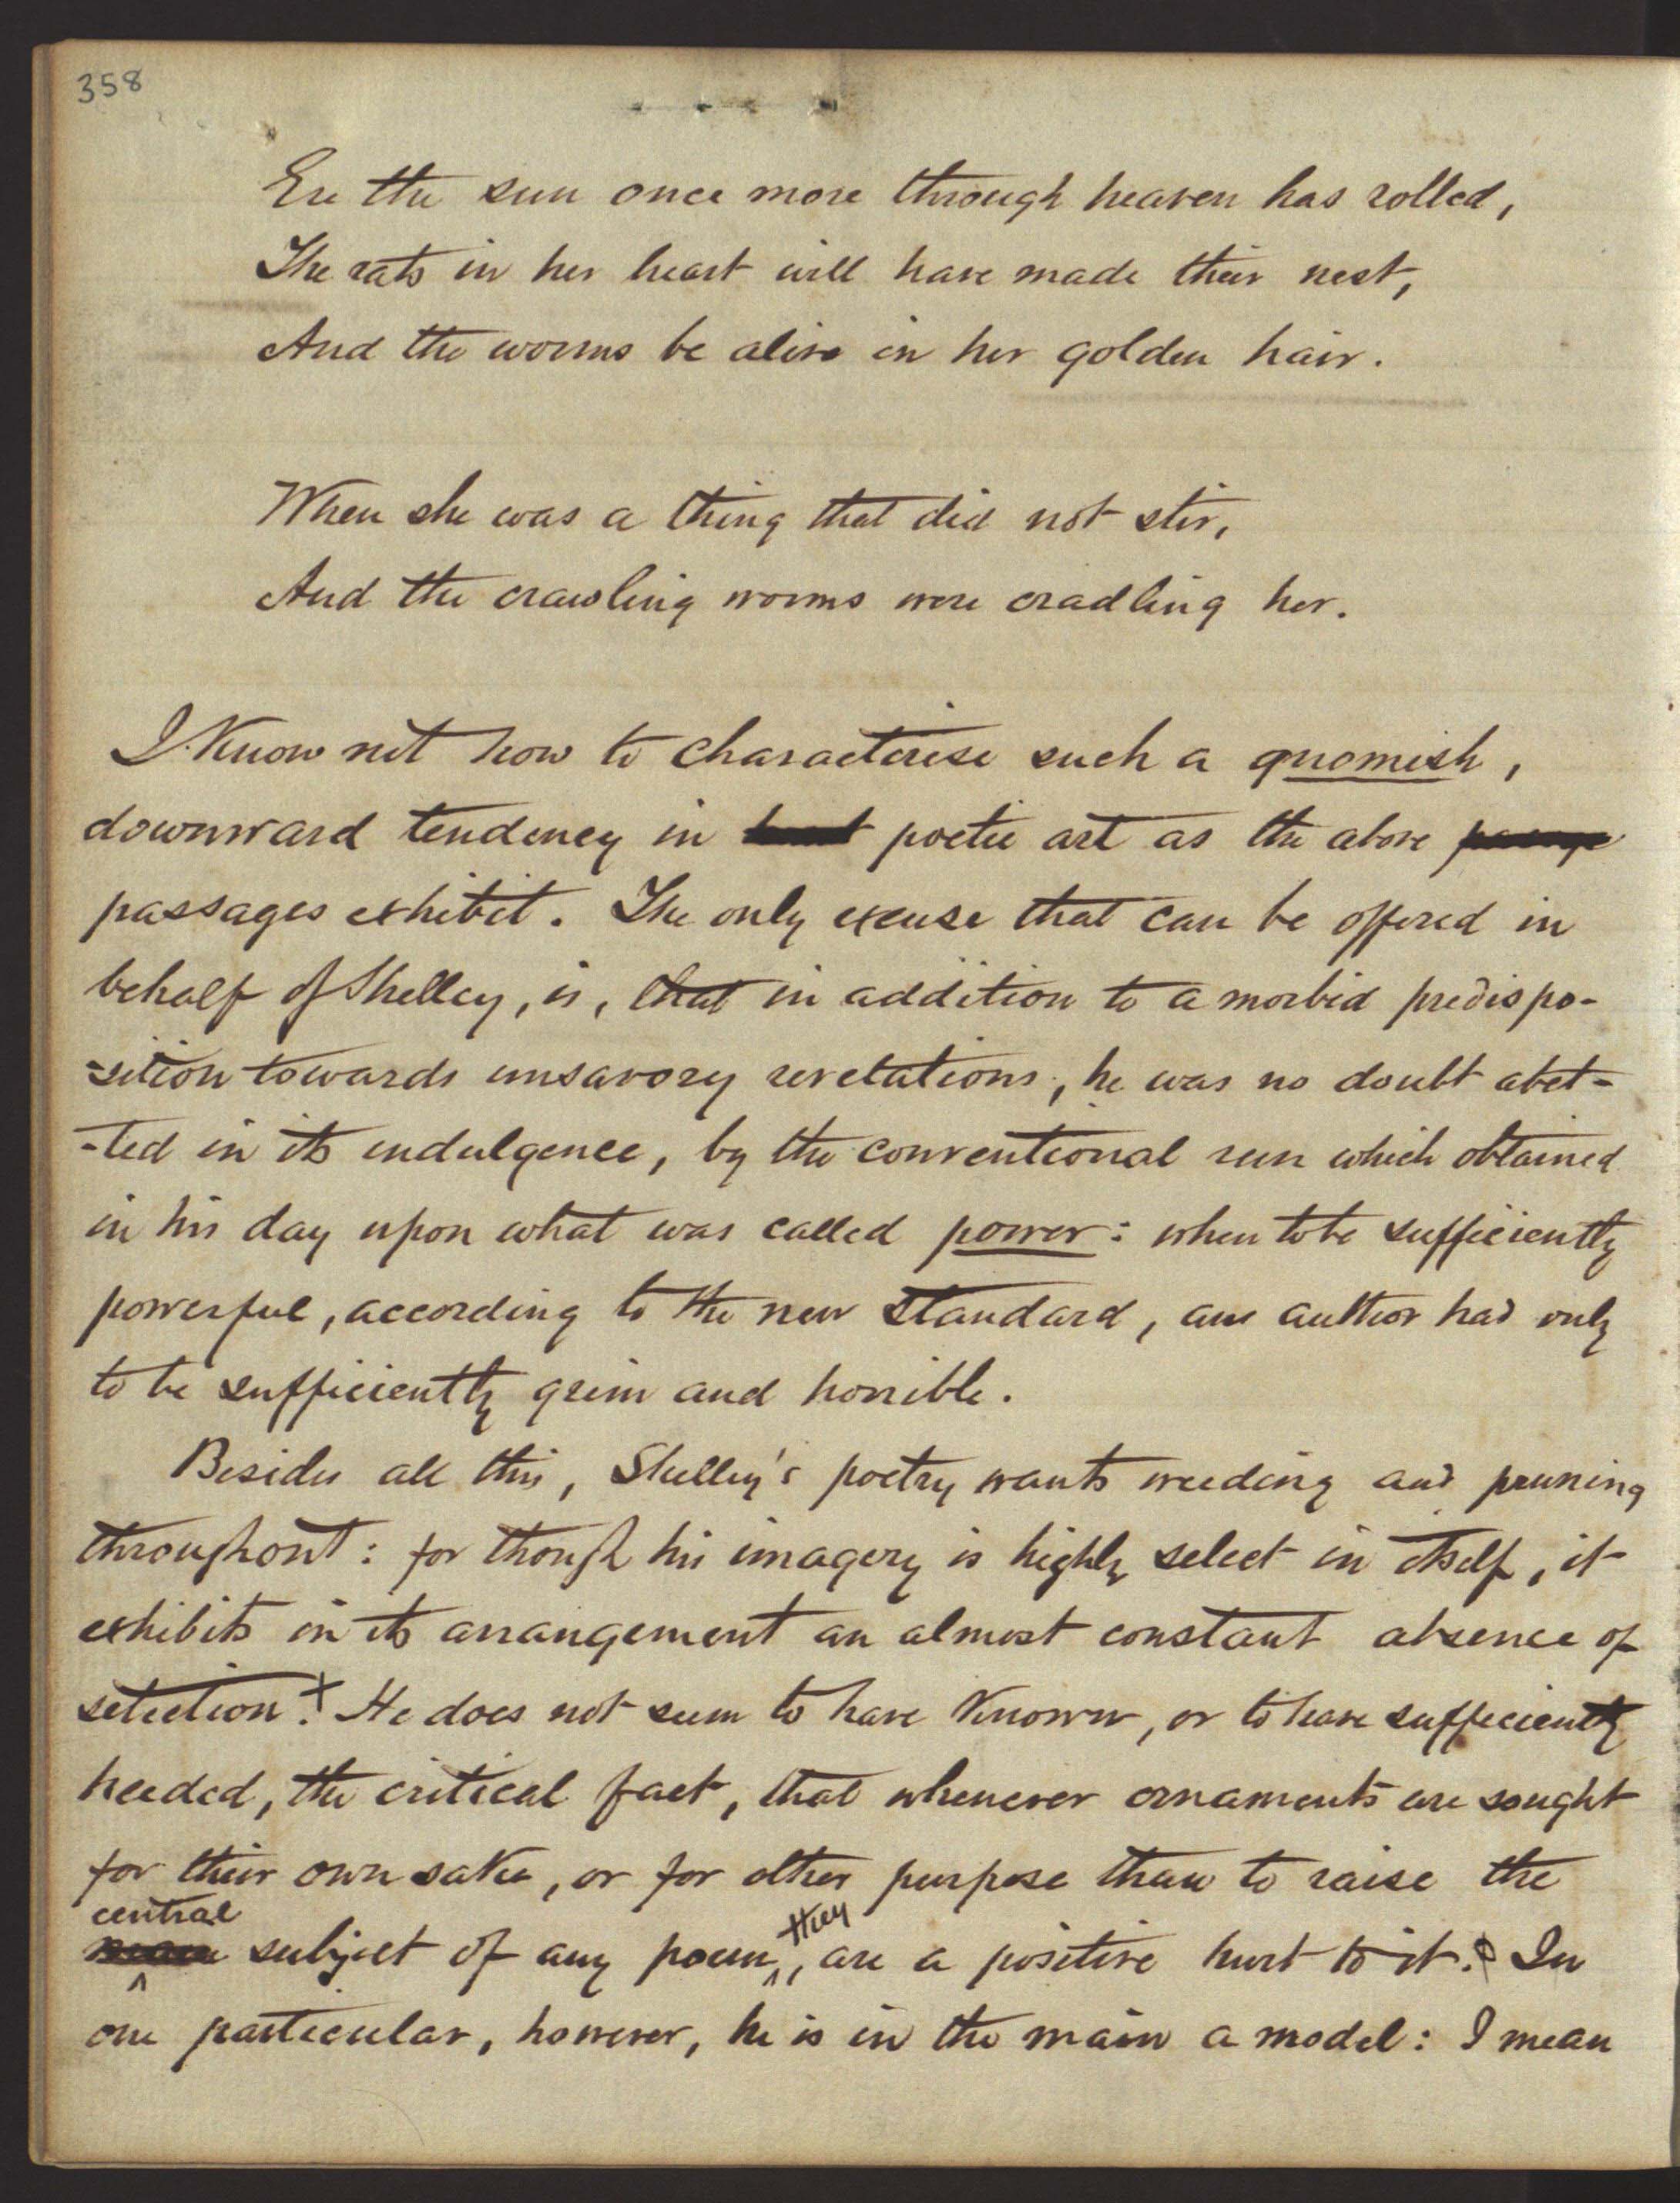 358
Ere the sun once more through heaven has rolled,
The rats in her heart will have made their nest,
And the worms be alive in her golden hair.
When she was a thing that did not stir,
And the crawling worms were cradling her.
I know not how to characterise such a gnomish,
downward tendency in poetic art as the above passage
passages exhibit. The only excuse that can be offered in
behalf of Shelley, is, that in addition to a morbid predispo-
-sition towards unsavory revelations, he was no doubt abet-
-ted in its indulgence, by the conventional run which obtained
in his day upon what was called power: when to be sufficiently
powerful, according to the new standard, an author had only
to be sufficiently grim and horrible.
Besides all this, Shelley's poetry wants weeding and pruning
throughout: for though his imagery is highly select in itself, it
exhibits in its arrangement an almost constant absence of
selection.+ He does not seem to have known, or to have sufficiently
heeded, the critical fact, that whenever ornaments are sought
for their own sake, or for other purpose than to raise the
central
subject of any poem, they are a positive hurt to it. In
one particular, however, he is in the main a model: I mean